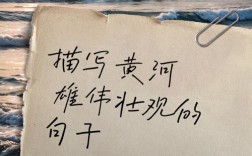 描写黄河
雄伟壮观的
句子